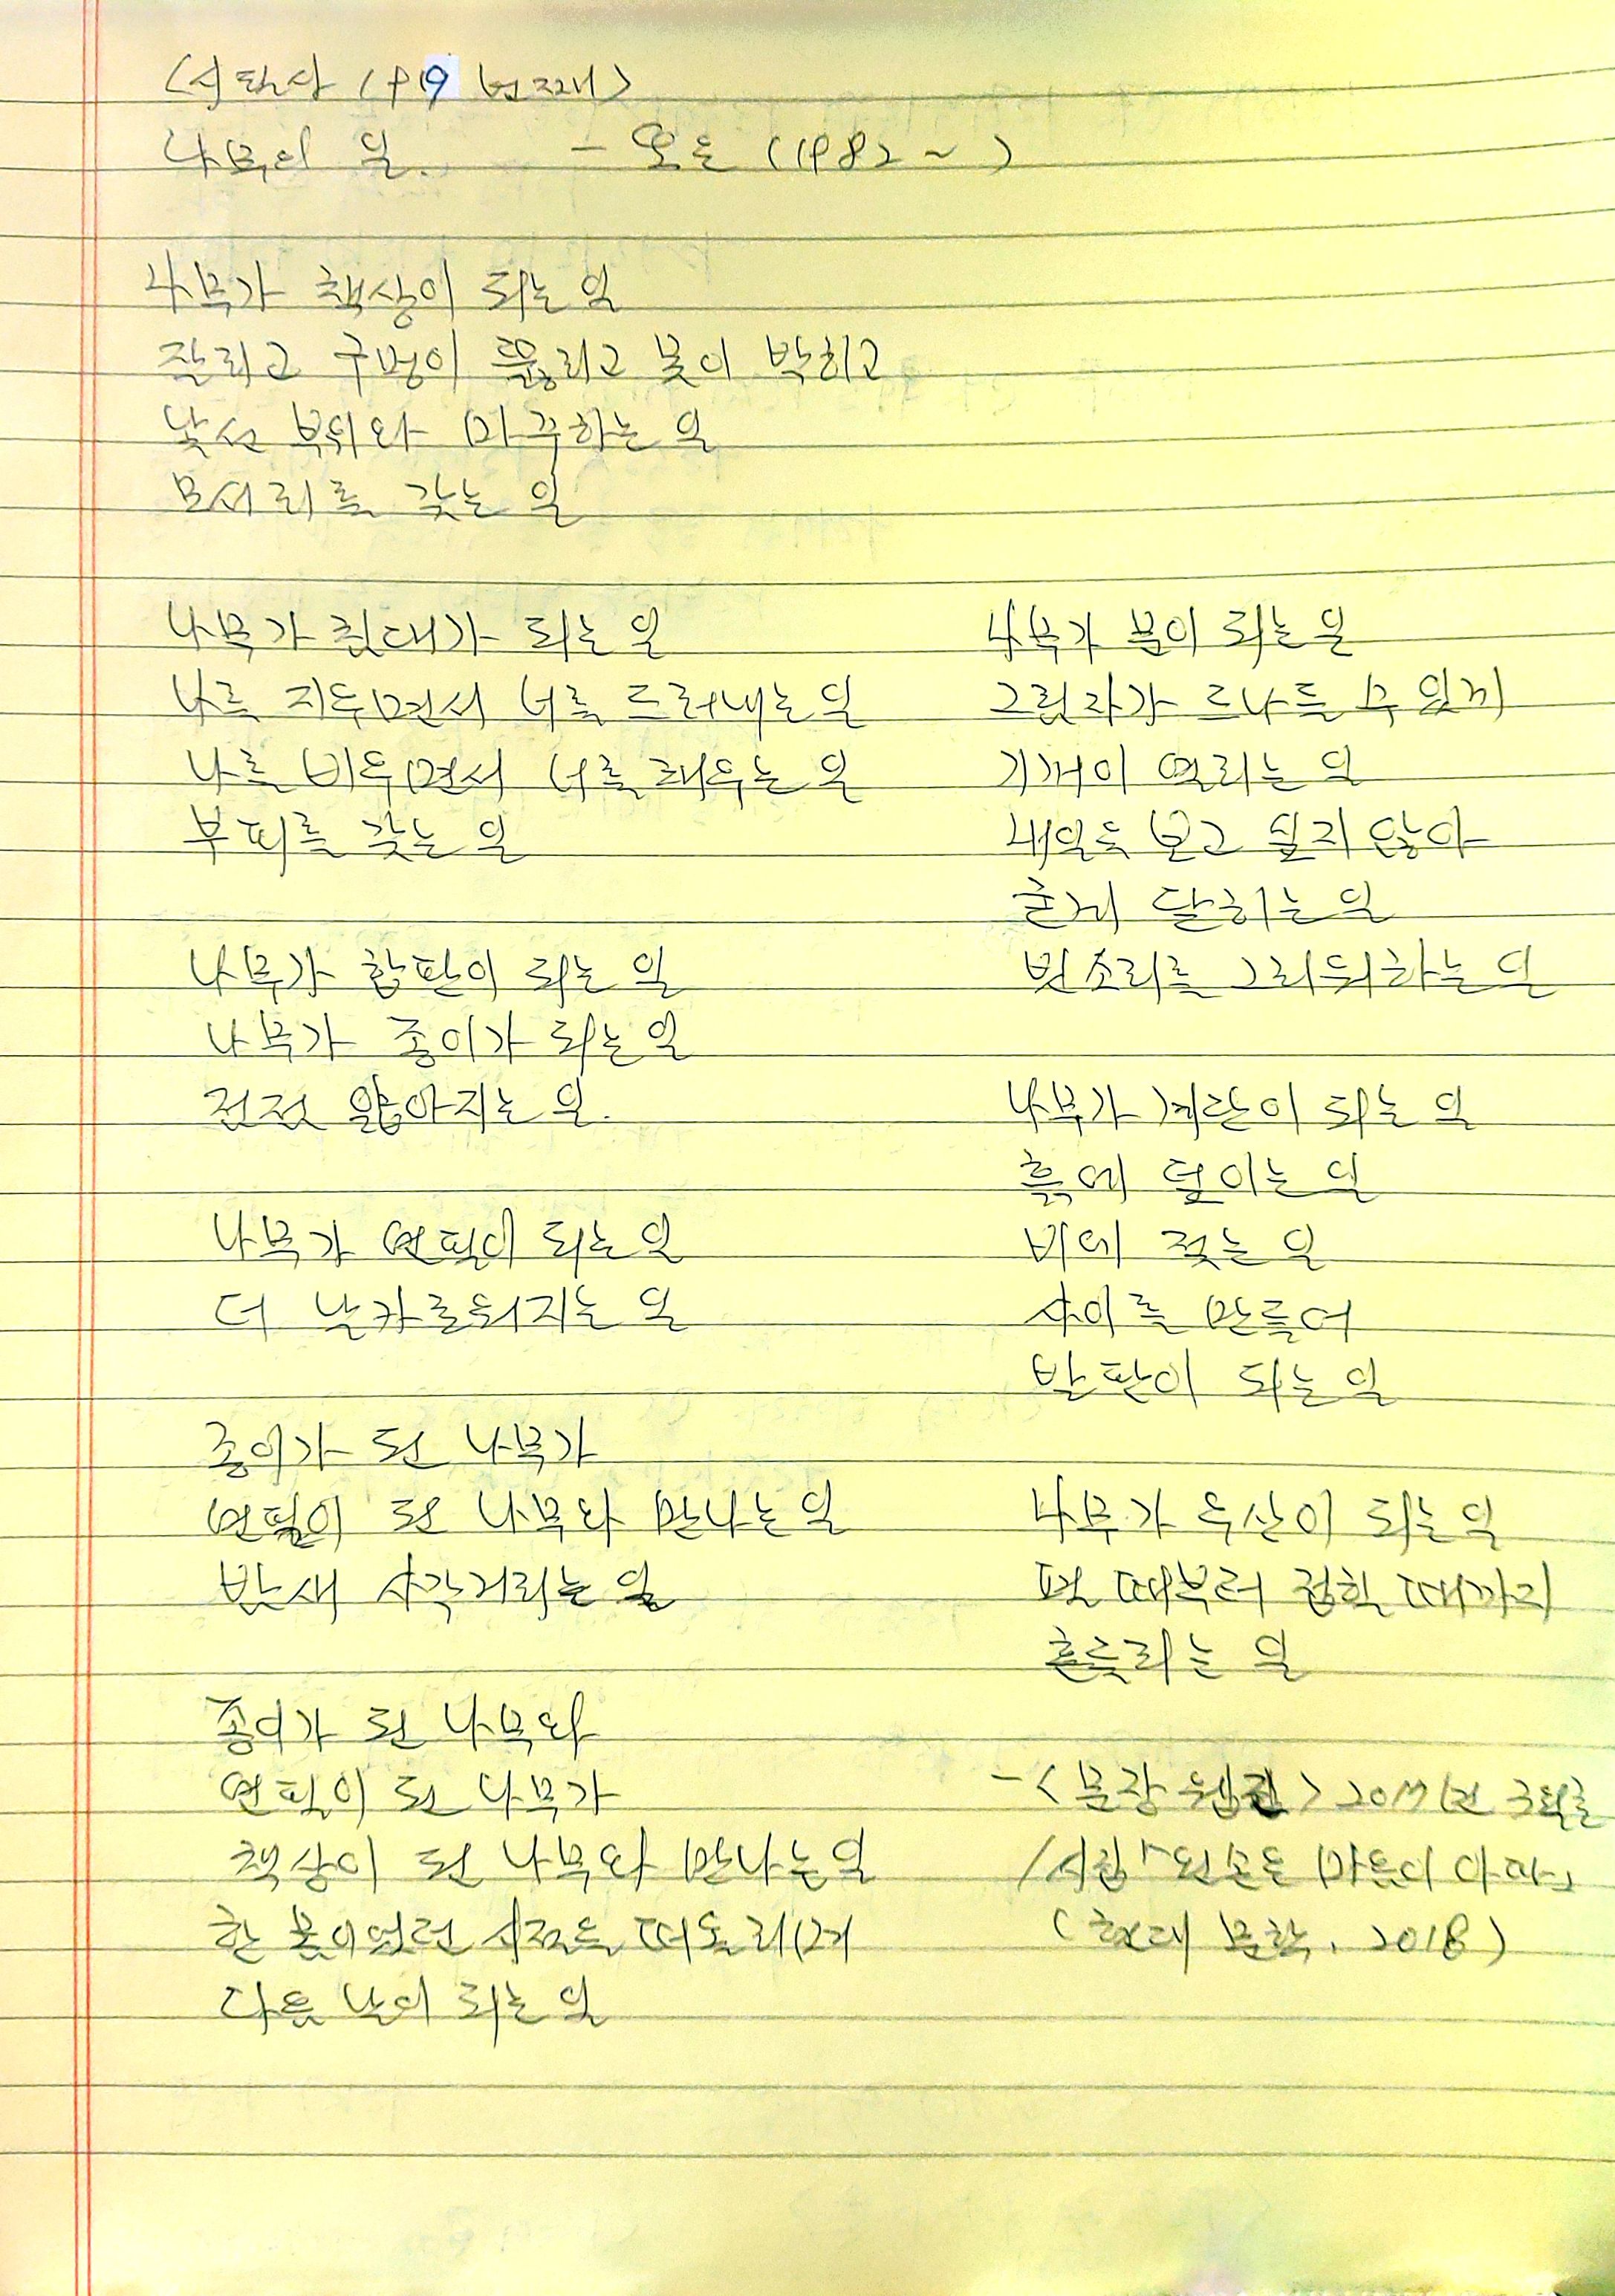 <시란사 199 번째>
나무의 일. - 오은 (1982 ~ )
나무가 책상이 되는 일
잘리고 구멍이 뚫리고 못이 박히고
낯선 부위와 마주하는 일
모서리를 갖는 일
나무가 침대가 되는 일
나를 지우면서 너를 드러내는 일
나를 비우면서 너를 채우는 일
부피를 갖는 일
나무가 합판이 되는 일
나무가 종이가 되는 일
점점 얇아지는 일.
나무가 연필이 되는 일
더 날카로워지는 일
종이가 된 나무가
연필이 된 나무와 만나는 일
밤새 사각거리는 일
종이가 된 나무와
연필이 된 나무가
책상이 된 나무와 만나는 일
한 몸이었던 시절을 떠올리며
다음 날이 되는 일
나무가 문이 되는 일
그림자가 드나들 수 있게
기꺼이 열리는 일
내일을 보고 싶지 않아
굳게 닫히는 일
빗소리를 그리워하는 일
나무가 계단이 되는 일
흙에 덮이는 일
비에 젖는 일
사이를 만들어
발판이 되는 일
나무가 우산이 되는 일
펼 때부터 접힐 때까지
흔들리는 일
- <문장 웹진> 2017년
/시집「왼손은 마음이 아파」
(현대 문학, 2018)